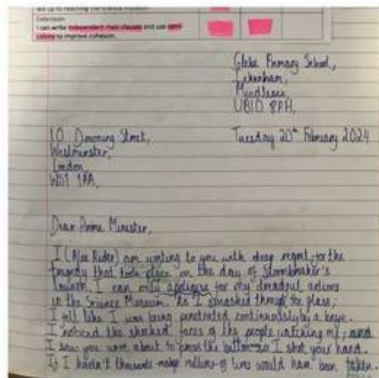 Extension
I can write independent main clauses and use semi
colons to improve cohesion.
Glebe Primary School,
Ickenham,
Middlesex,
UB10 8PH,
10 Downing Street,
Tuesday 20th February 2024
Westminster,
London,
1AA,
Dear Prime Minister,
I (Alex Rider) am writing to you with deep regret, for the
tragedy that took place on the day of Stormbreaker's
launch. I can only apologise for my dreadful actions
in the Science Museum. As I smashed through the glass;
I felt like I was being penetrated continuously by a knife.
I noticed the shocked faces of the people watching me; and
I saw you were about to press the button so I shot your hand.
If I hadn't thousands maybe millions of lives would have been taken.